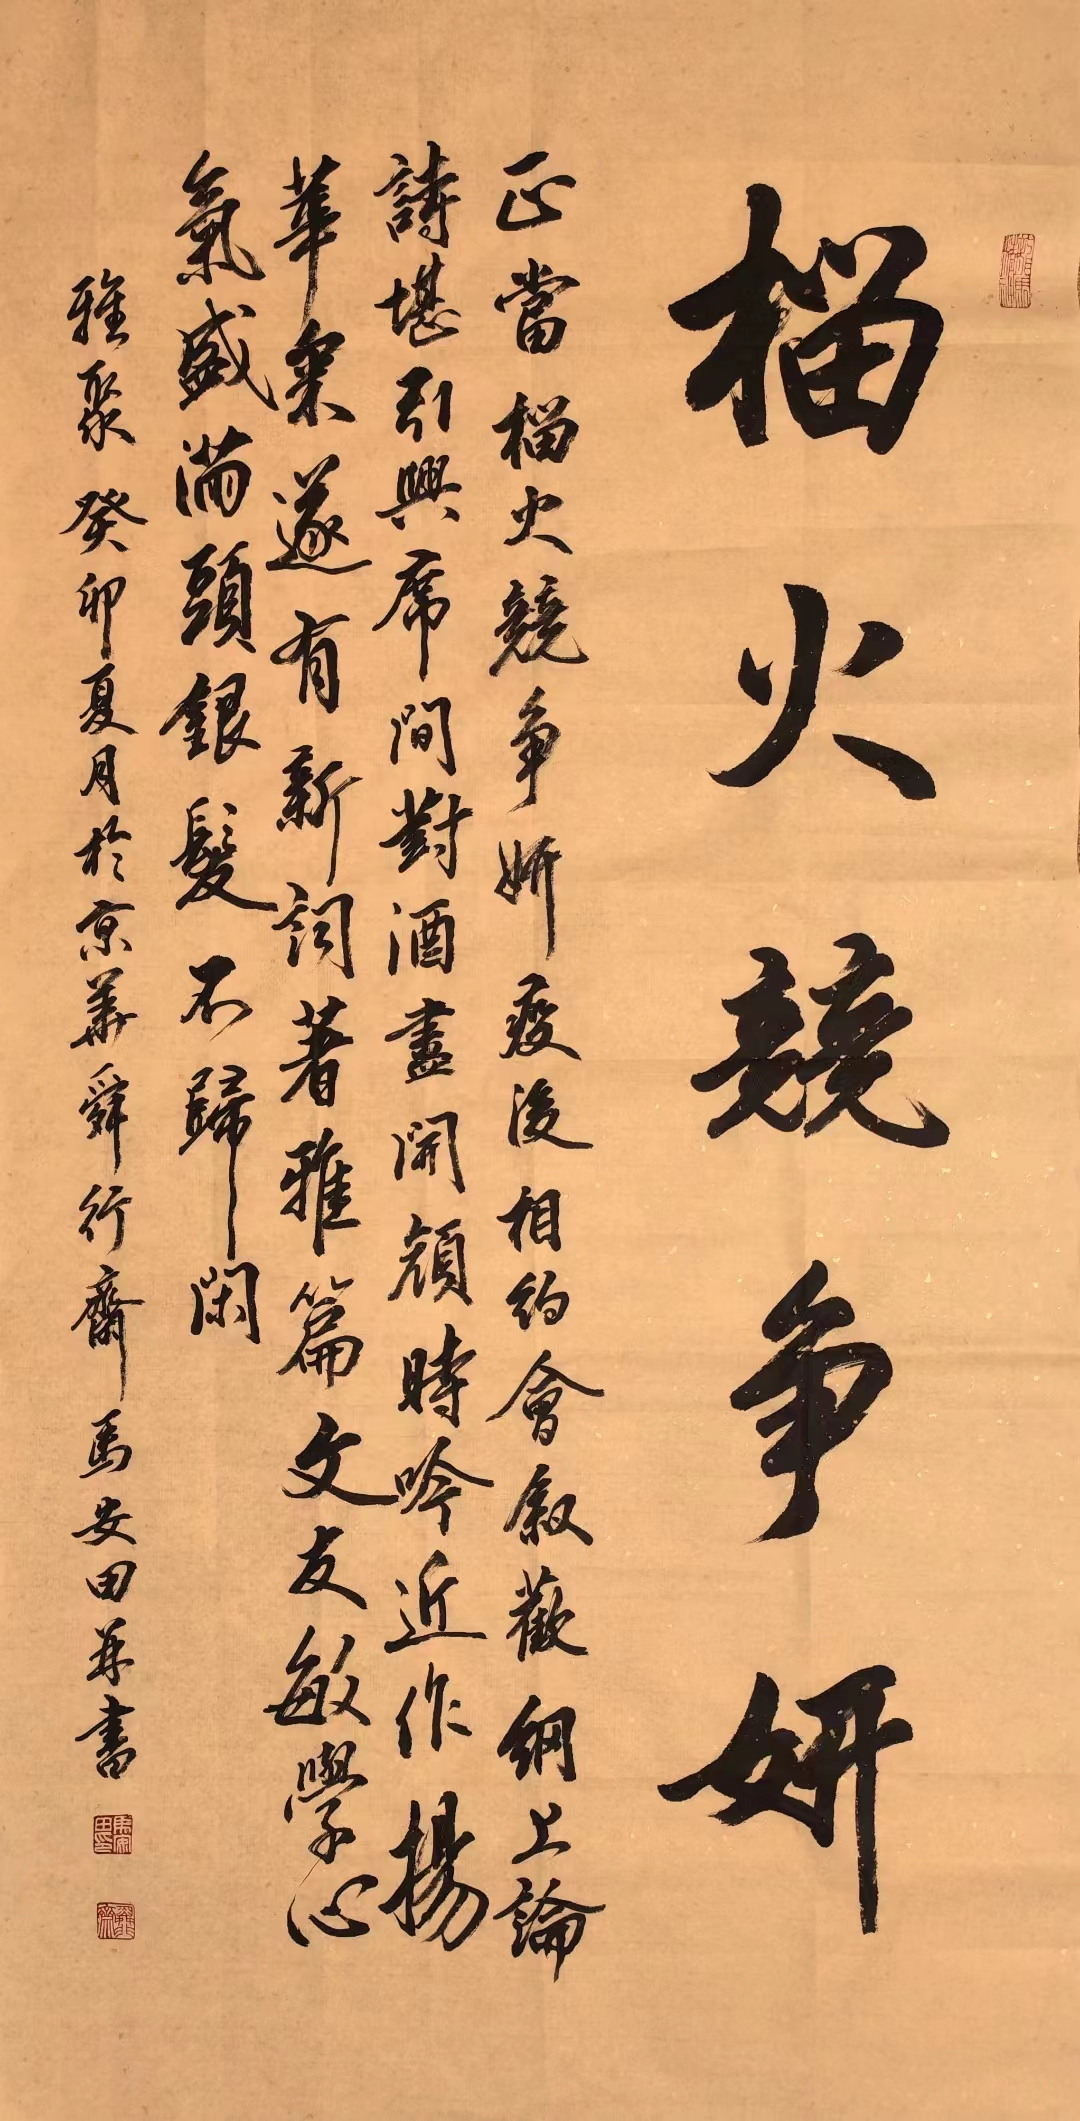 榴火競争妍
正當榴火競争妍疫後相約會叙歡網上論
詩堪引興席間對酒盡開顔時吟近作揚
華彩遂有新詞著雅篇文友敏學心
氣盛滿頭銀髮不歸閑
雅聚癸卯夏月於京華舜行齋馬安田并書